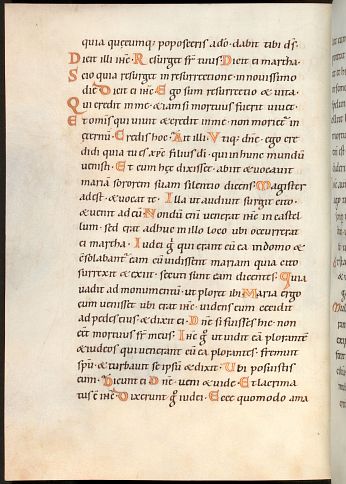 quia quęcumq; poposceris ado͞· dabit tibi d͞s·
Dicit illi ih͞c· Resurget fr͞ tuus· Dicit ei martha·
Scio quia resurget in resurrectione in novissimo
die· Dicit ei ih͞c· Ego sum resurrectio & vita·
Qui credit in me· & iam si mortuus fuerit vivet·
Et om͞is qui vivit & credit in me· non moriet͞ in
ęternũ· Credis hoc· Ait illi· Vtiq; dn͞e· ego cre
didi quia tu es xp͞c filius di͞· qui in hunc mundũ
venisti· Et cum hęc dixisset· abiit & vocavit
mariã sororem suam silentio dicens· Magister
adest· & vocat te· Illa ut audivit surgit cito·
& venit ad eũ· Nondũ eni͞ venerat ih͞c in castel
lum· sed erat adhuc in illo loco ubi occurrerat
ei martha· Iudei g͛ qui erant cũ ea in domo &
c͞solabant͞ eam cũ vidissent mariam quia cito
surrexit & exiit· secuti sunt eam dicentes· Quia
vadit ad monumentũ· ut ploret ibi· Maria ergo
cum venisset ubi erat ih͞c· videns eum cecidit
ad pedes eius & dixit ei· Dn͞e si fuisses hic· non
eet͞ mortuus fr͞ meus· Ih͞c g͛ ut vidit eã plorantẽ
& iudeos qui venerant cũ ea plorantes· fremuit
sp͞u· & turbavit se ipsũ & dixit· Ubi posuistis
eum· Dicunt ei· Dn͞e· veni & vide· Et lacrima
tus ẽ ih͞c· Dixerunt g͛ iudei· Ecce quomodo ama